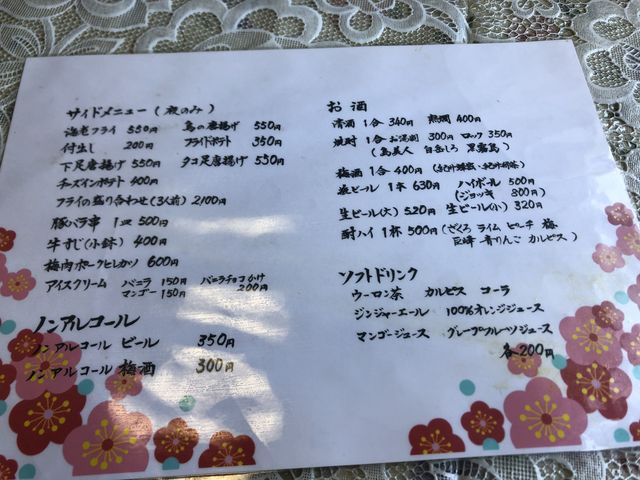 サイドメニュー (夜のみ)
海老フライ 550円 鳥の唐揚げ 550円
付出し 200円 フライドポテト 350円
下足唐揚げ 550円 タコ足唐揚げ 550円
チーズインポテト 400円
フライの盛り合わせ(3人前) 2100円
豚バラ串 1皿 500円
牛すじ(小鉢) 400円
梅肉ポークヒレカツ 600円
アイスクリーム バニラ 150円 バニラチョコかけ
マンゴー 150円 200円
ノンアルコール
ノンアルコール ビール 350円
ノンアルコール 梅酒 300円
お酒
清酒 1合 340円 熱燗 400円
焼酎 1合 お湯割 300円 ロック 350円
(島美人 白霧しろ 黒霧島)
梅酒 1合 400円
瓶ビール 1本 630円 ハイボール 500円
(ジョッキ 800円)
生ビール(大) 520円 生ビール(小) 320円
酎ハイ 1杯 500円 (ざくろ ライム ピーチ 梅
巨峰 青りんご カルピス)
ソフトドリンク
ウーロン茶 カルピス コーラ
ジンジャーエール 100%オレンジジュース
マンゴージュース グレープフルーツジュース
各200円